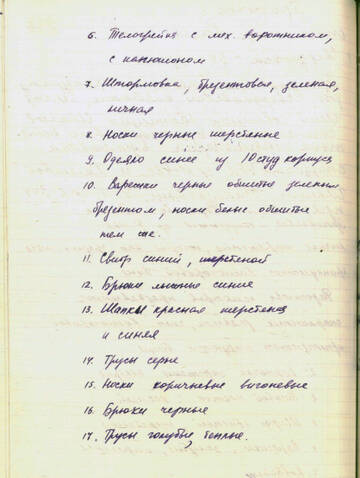 6. Телогрейка с мех. воротником,
с капюшоном
7. Штормовка, брезентовая, зеленая,
личная
8. Носки черные шерстяные
9. Одеяло синее из 10 студ корпуса
10. Варежки черные обшитые зеленым
брезентом, носки белые обшитые
тем же.
11. Свитр синий, шерстяной
12. Брюки лыжные синие
13. Шапки красная шерстяная
и синяя
14. Трусы серые
15. Носки коричневые вигоневые
16. Брюки черные
17. Трусы голубые, теплые.